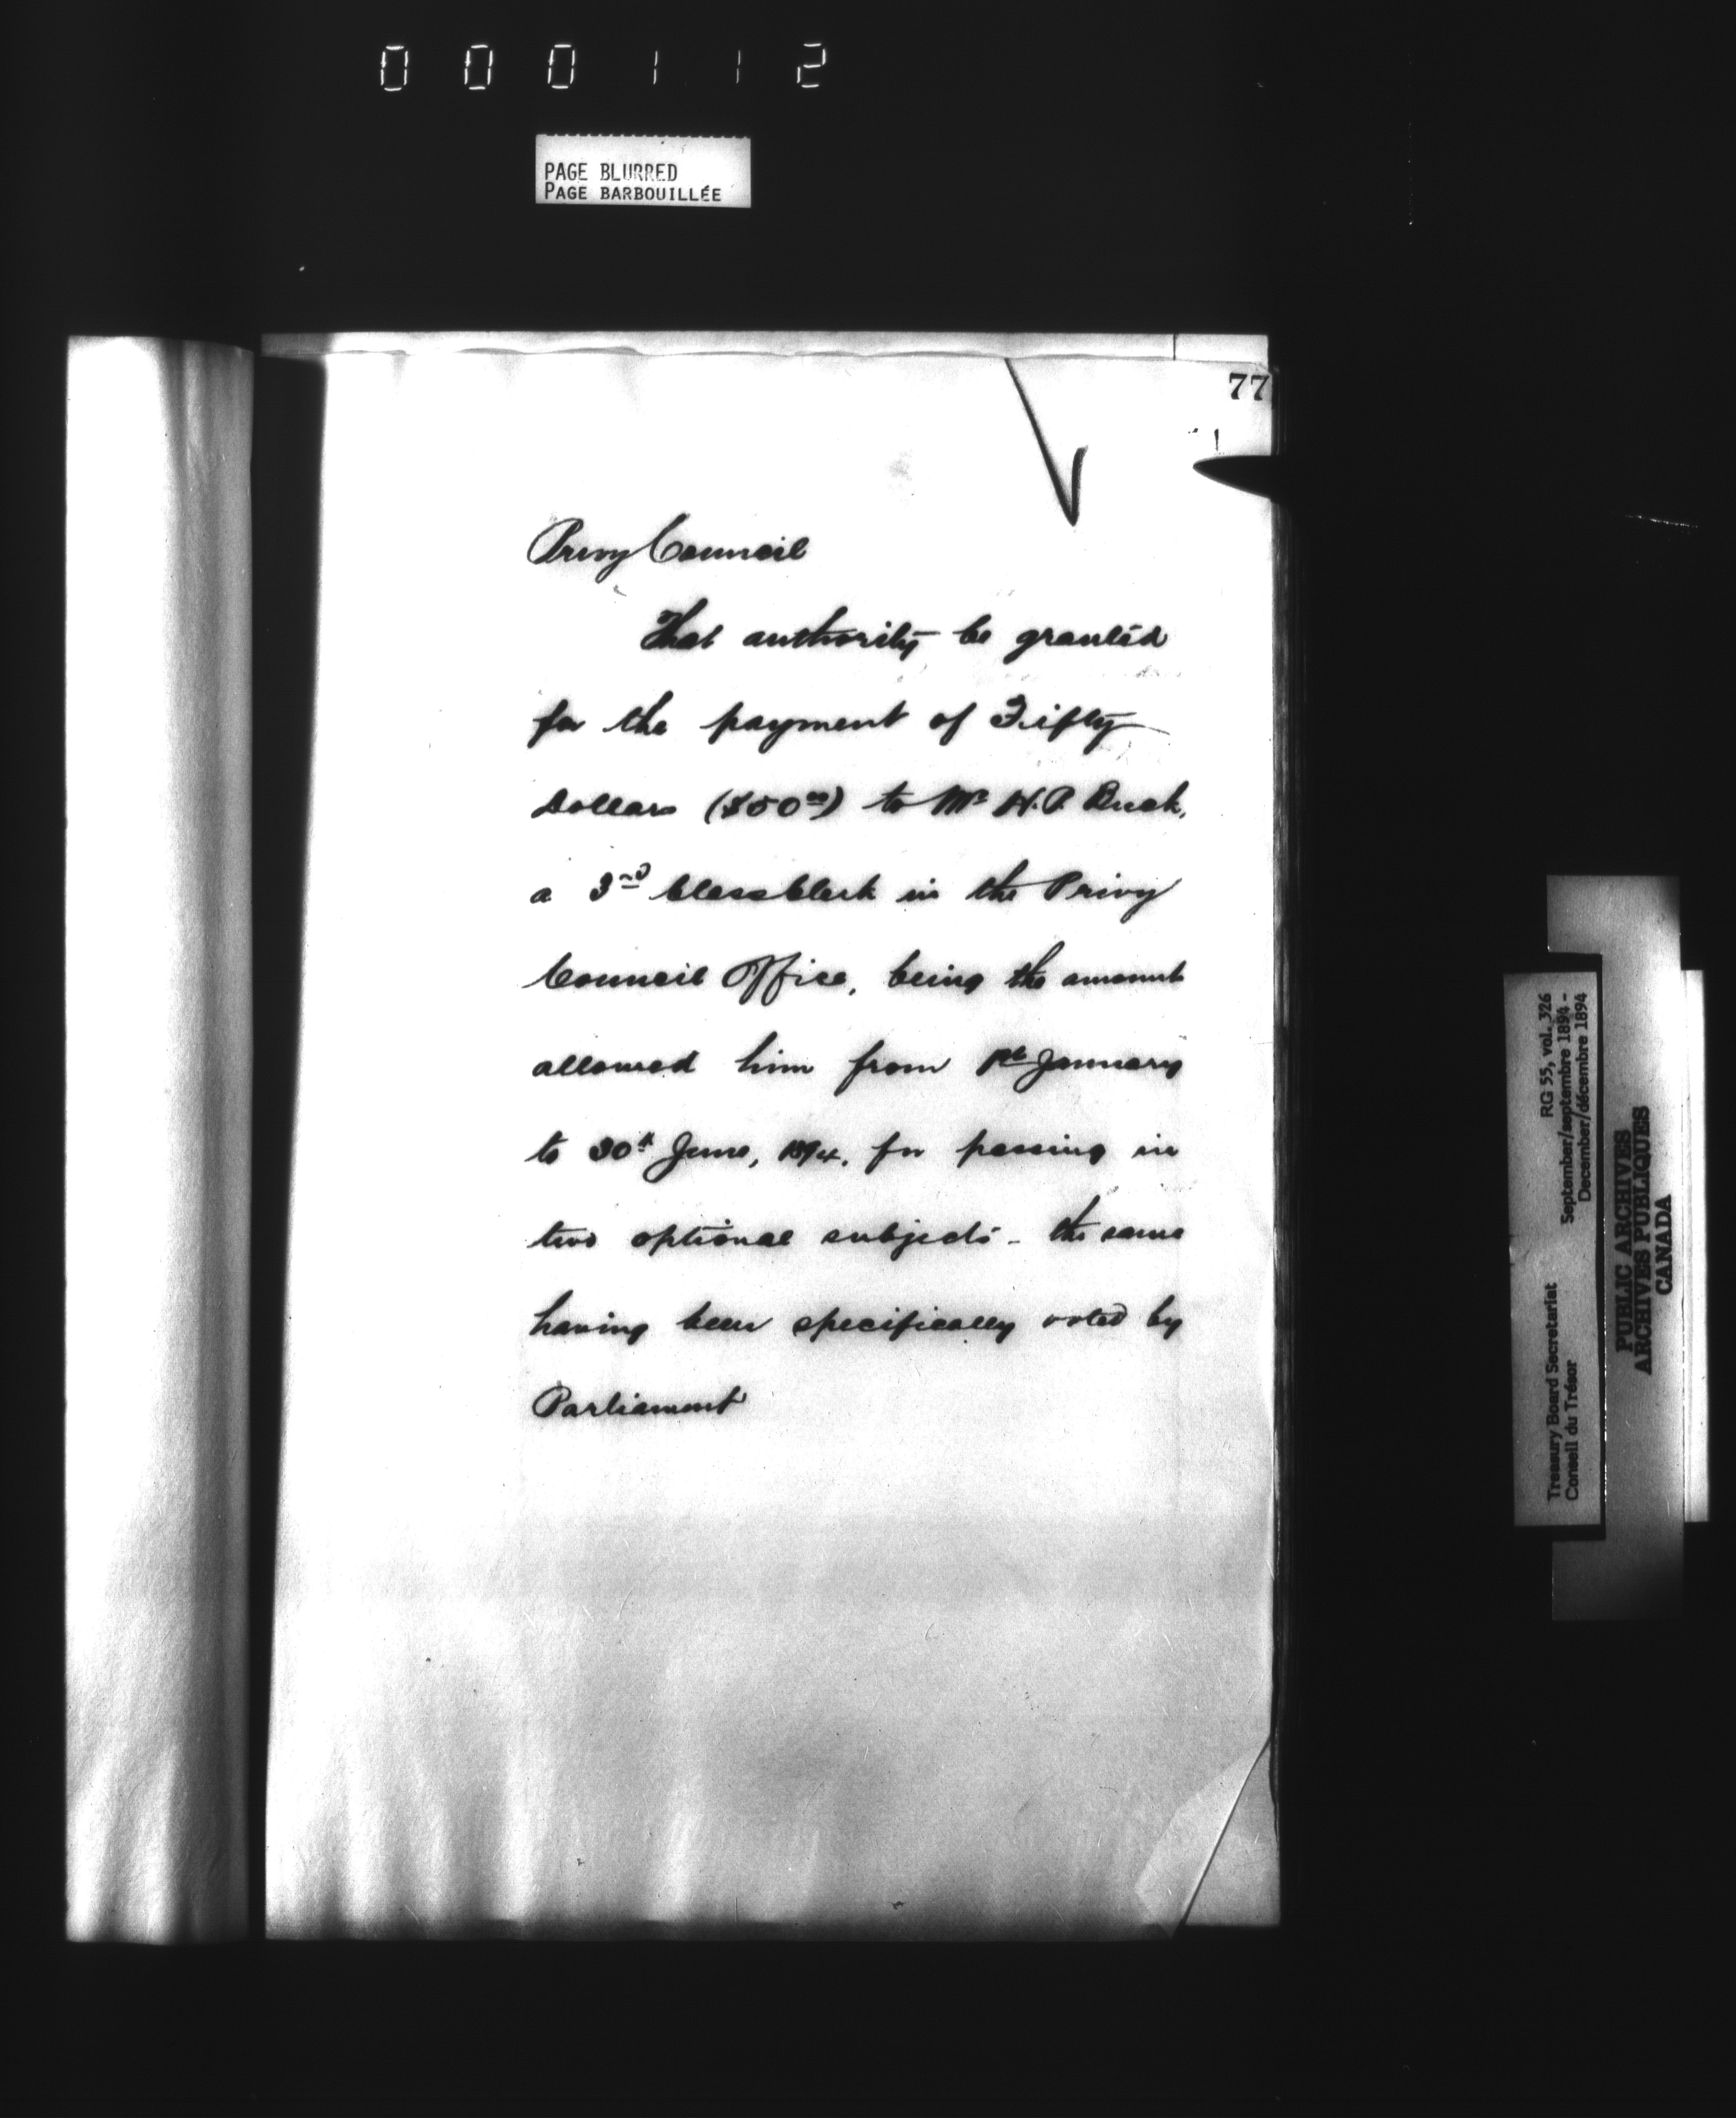 000112
PAGE BLURRED
PAGE BARBOUILLÉE
77
Privy Council
That authority be granted
for the payment of Fifty
Dollars ($50⁰⁰) to Mr H.P.
a 3rd Class Clerk in the Privy
Council Office, being the amount
allowed him from 1st January
to 30th June, 1894, for passing in
two optional subjects - the same
having been specifically voted by
Parliament
RG 55, vol. 326
September/septembre 1894 -
December/décembre 1894
Treasury Board Secretariat
Conseil du Trésor
PUBLIC ARCHIVES
ARCHIVES PUBLIQUES
CANADA